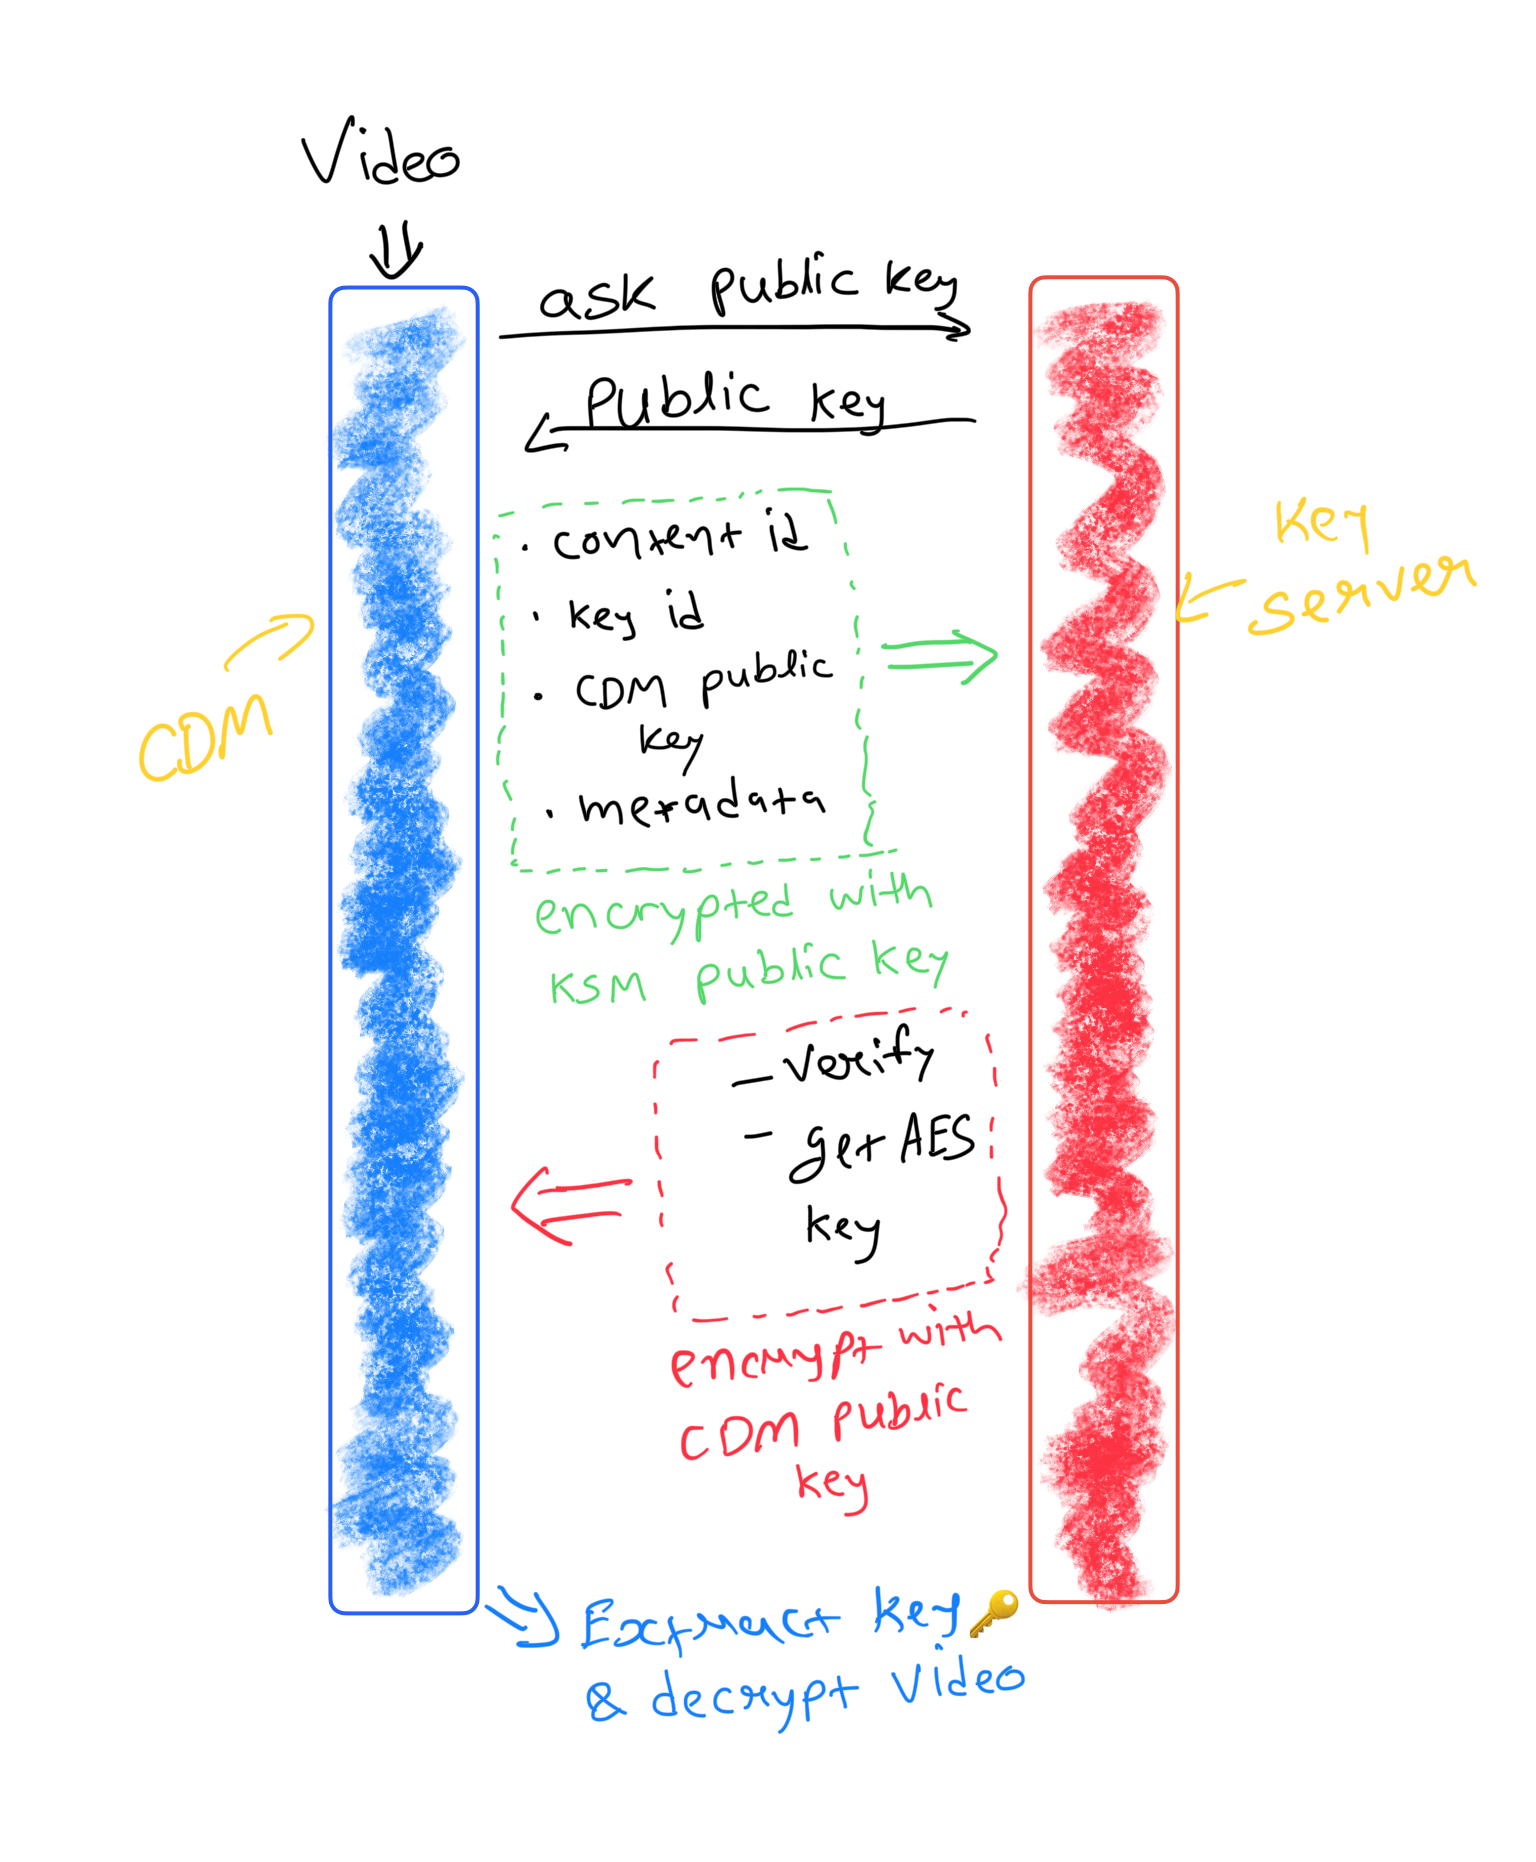 Video
ask public key
Public key
• content id
• key id
• CDM public
key
• metadata
encrypted with
KSM public key
Key
server
CDM
– Verify
– get AES
key
encrypt with
CDM public
key
Extract key 🔑
& decrypt video